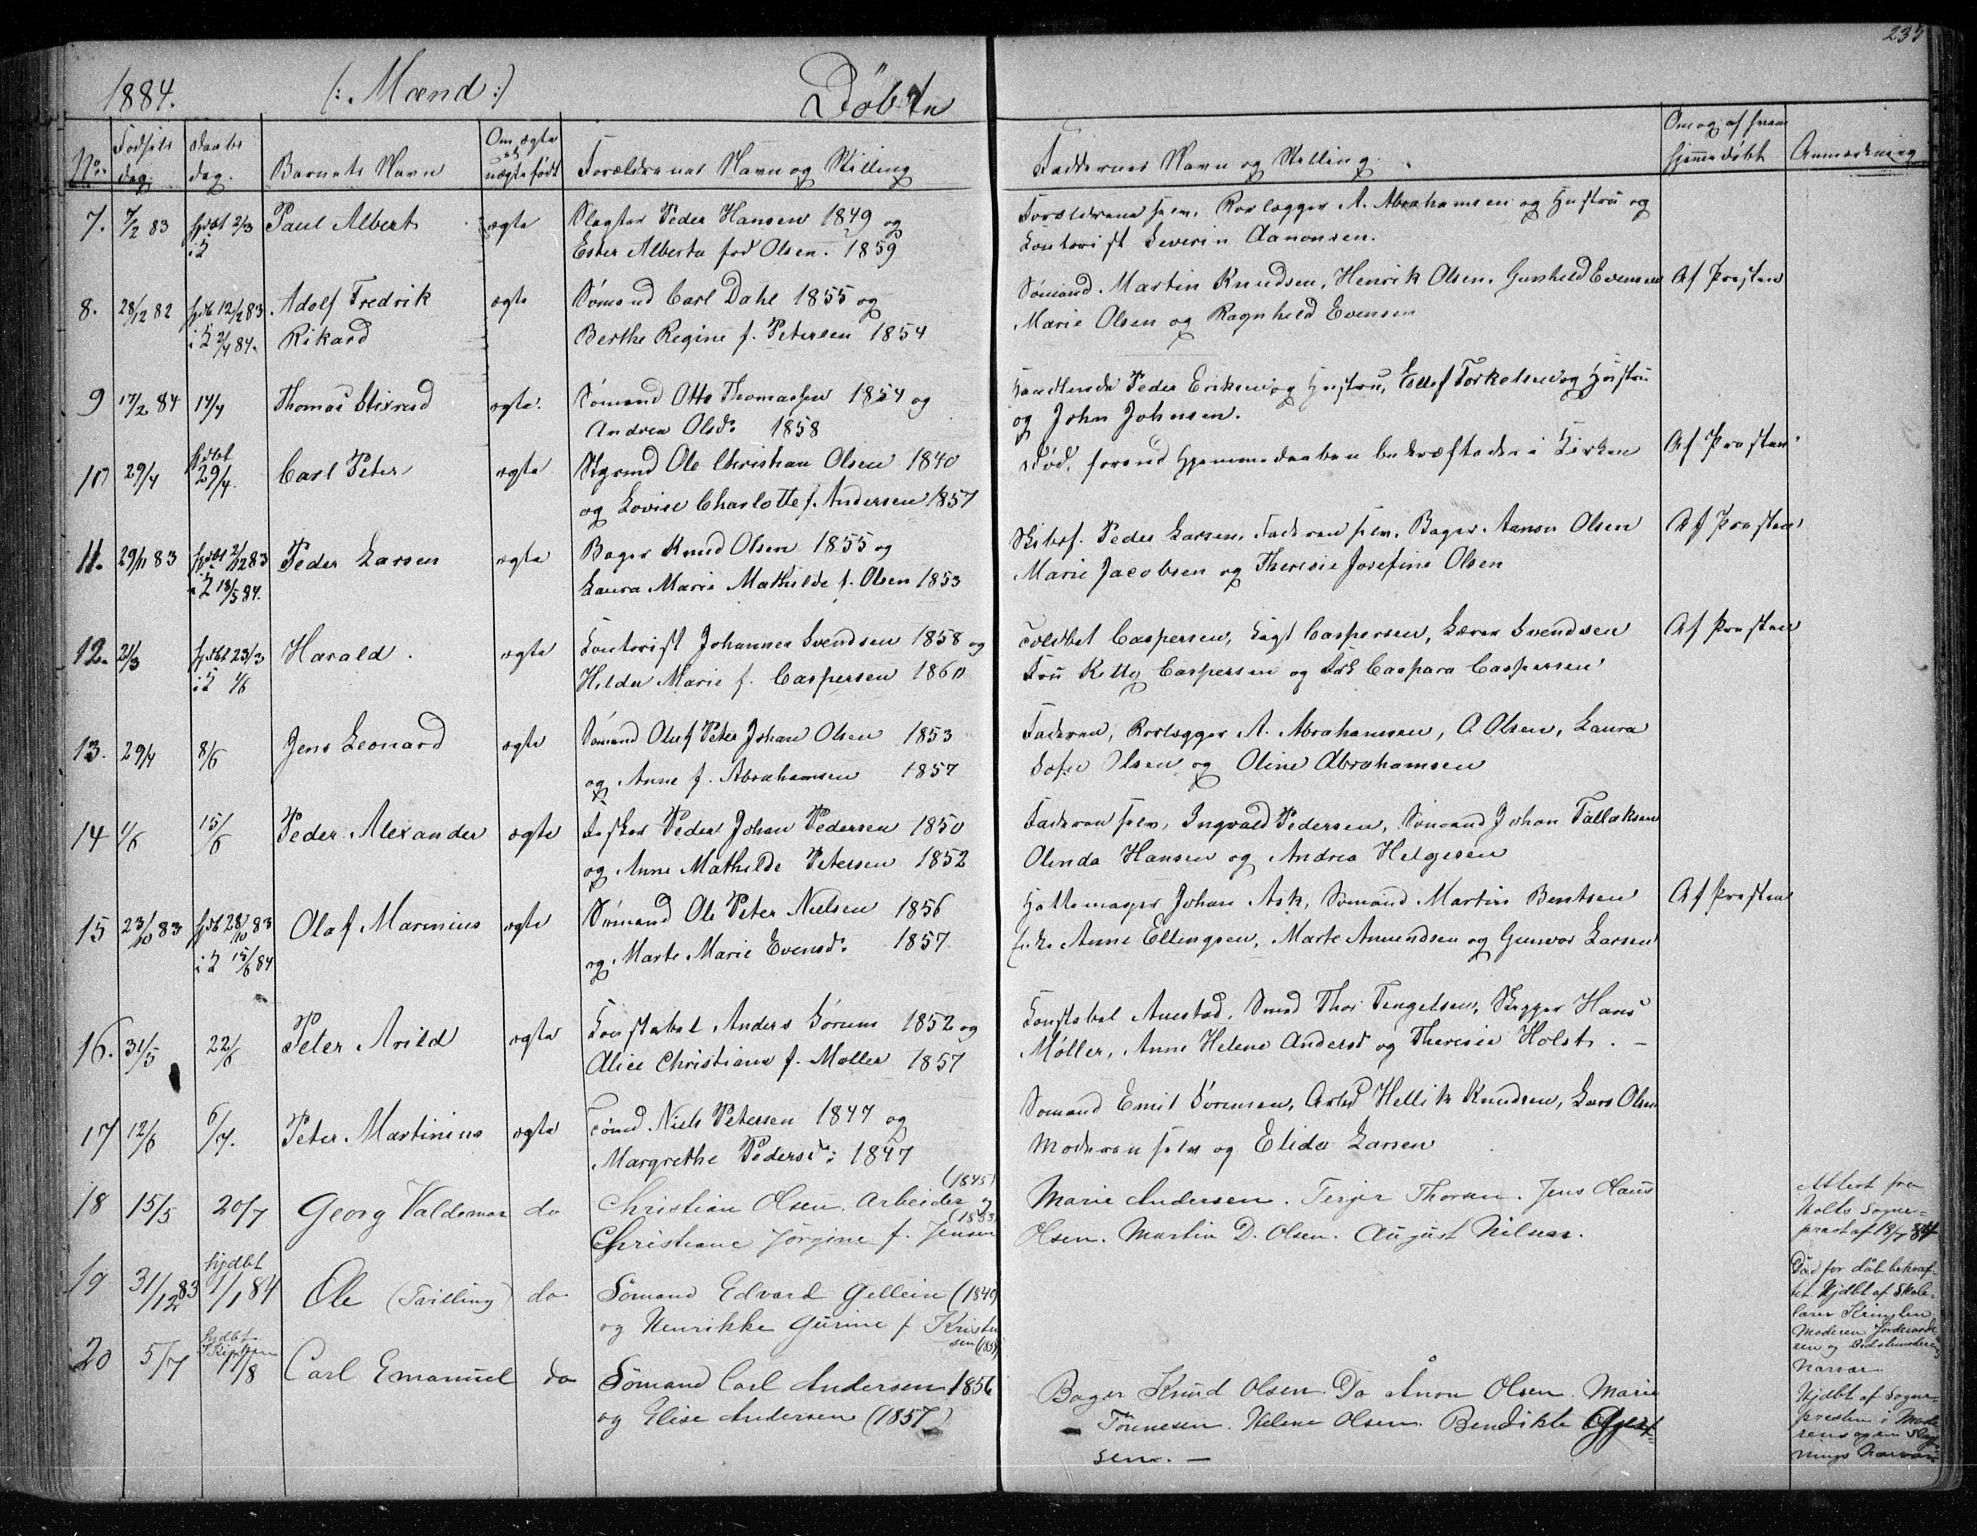 235
1884. (: Mænd :) Döbte
No. Fødsels dag. Daabs dag. Barnets Navn Om ægte el. uægte født Forældrenes Navn og Stilling Faddernes Navn og Stilling. Om og af hvem hjemmedøbt Anmærkning
7. 7/2 83 hjdbt 2/3 Paul Albert ægte Slagter Peder Hansen 1849 og Forældrene selv, Rorlægger A. Abrahamsen og Hustru og
Ester Alberta fød Olsen. 1859 Kontorist Severin Aanonsen.
8. 28/12 82 hjdbt 12/2 83 Adolf Fredrik ægte Sømand Carl Dahl 1855 og Sømand Martin Knudsen, Henrik Olsen, Gunhild Evensen Af Præsten
84. Rikard Berthe Regine f. Petersen 1854 Marie Olsen og Ragnhild Evensen
9 17/2 84 14/4 Thomas ægte. Sømand Otto Thomassen 1854 og Peder Eriksen og Hustru, Ellef Torkelsen og Hustru
Andrea Olsdr 1858 og John Johnsen.
10 29/4 hjdbt 29/4. Carl Peter ægte Styrmd Ole Christian Olsen 1840 Død, forend Hjemmedaaben bekræftedes i Kirken Af Præsten
og Lovise Charlotte f. Andersen 1857
11. 29/11 83 hjdbt 2/12 83 Peder Larsen ægte Bager Knud Olsen 1855 og Skibsf. Peder Larsen, Faderen selv, Bager Aanon Olsen Af Præsten
18/5 84. Laura Marie Mathilde f. Olsen 1853 Marie Jacobsen og Theresie Josefine Olsen
12. 2/3 hjdbt 23/3 Harald. ægte Kontorist Johannes Svendsen 1858 og Toldbet Caspersen, Kapt Caspersen, Lærer Svendsen Af Præsten
1/6 Hilda Marie f. Caspersen 1860 Fru Kitty Caspersen og Frk Caspara Caspersen
13. 29/4 8/6 Jens Leonard ægte Sømand Oluf Peter Johan Olsen 1853 Faderen, Rorlægger A. Abrahamsen, O Olsen, Laura
og Anne f. Abrahamsen 1857 Sofie Olsen og Oline Abrahamsen
14 1/6 15/6 Peder Alexander ægte Fisker Peder Johan Pedersen 1850 Faderen selv, Ingvald Pedersen, Sømand Johan Tallaksen
og Anne Mathilde Petersen 1852 Olinda Hansen og Andrea Helgesen
15 23/10 83 hjdbt 28/10 83 Olaf Marinius ægte Sømand Ole Peter Nielsen 1856 Hattemager Johan Ask, Sømand Martin Bentsen Af Præsten
15/6 84 og Marte Marie Evensdr 1857 Anne Ellingsen, Marte Amundsen og Gunvor Larsen
16. 31/5 22/6 Peter Arild ægte Konstabel Anders Sørum 1852 og Konstabel Auestad, Smed Thor Tengelsen, Skipper Hans
Alice Christiane f. Møller 1857 Møller, Anne Helene Andersd og Theresie Holst. -
17 12/6 6/7. Peter Martinius ægte Tømd Niels Petersen 1847 og Sømand Emil Sørensen, Arbd Hellik Knudsen, Lars Olsen
Margrethe Pedersd: 1847 Moderen selv og Elida Larsen
18 15/5 20/7 Georg Valdemar do Christian Olsen. Arbeider (1845) og Marie Andersen. Terjer Thorsen. Jens Olaus Attest fra
Christiane Jørgine f. Jensen (1853) Olsen. Martin D. Olsen. August Nilsen. Holts Sogne-
prest af 18/7 84
19 31/12 83 hjdbt 1/1 84 Ole (Tvilling) do Sømand Edvard Gellein (1840) Død før dåb bekræf-
og Henrikke Gurine f Kristensen tet Hjdbt af Skole-
lærer
Moderen Jordemode-
ren og
Nærvær.
20 5/7 hjdbt 11/8 Carl Emanuel do Sømand Carl Andersen 1856 Bager Knud Olsen. Do Ånon Olsen. Marie Hjdbt af Sogne-
og Elise Andersen (1857) Tønnesen. Helene Olsen. Bendikte presten i Mode-
sen. - rens og en
Nærvær